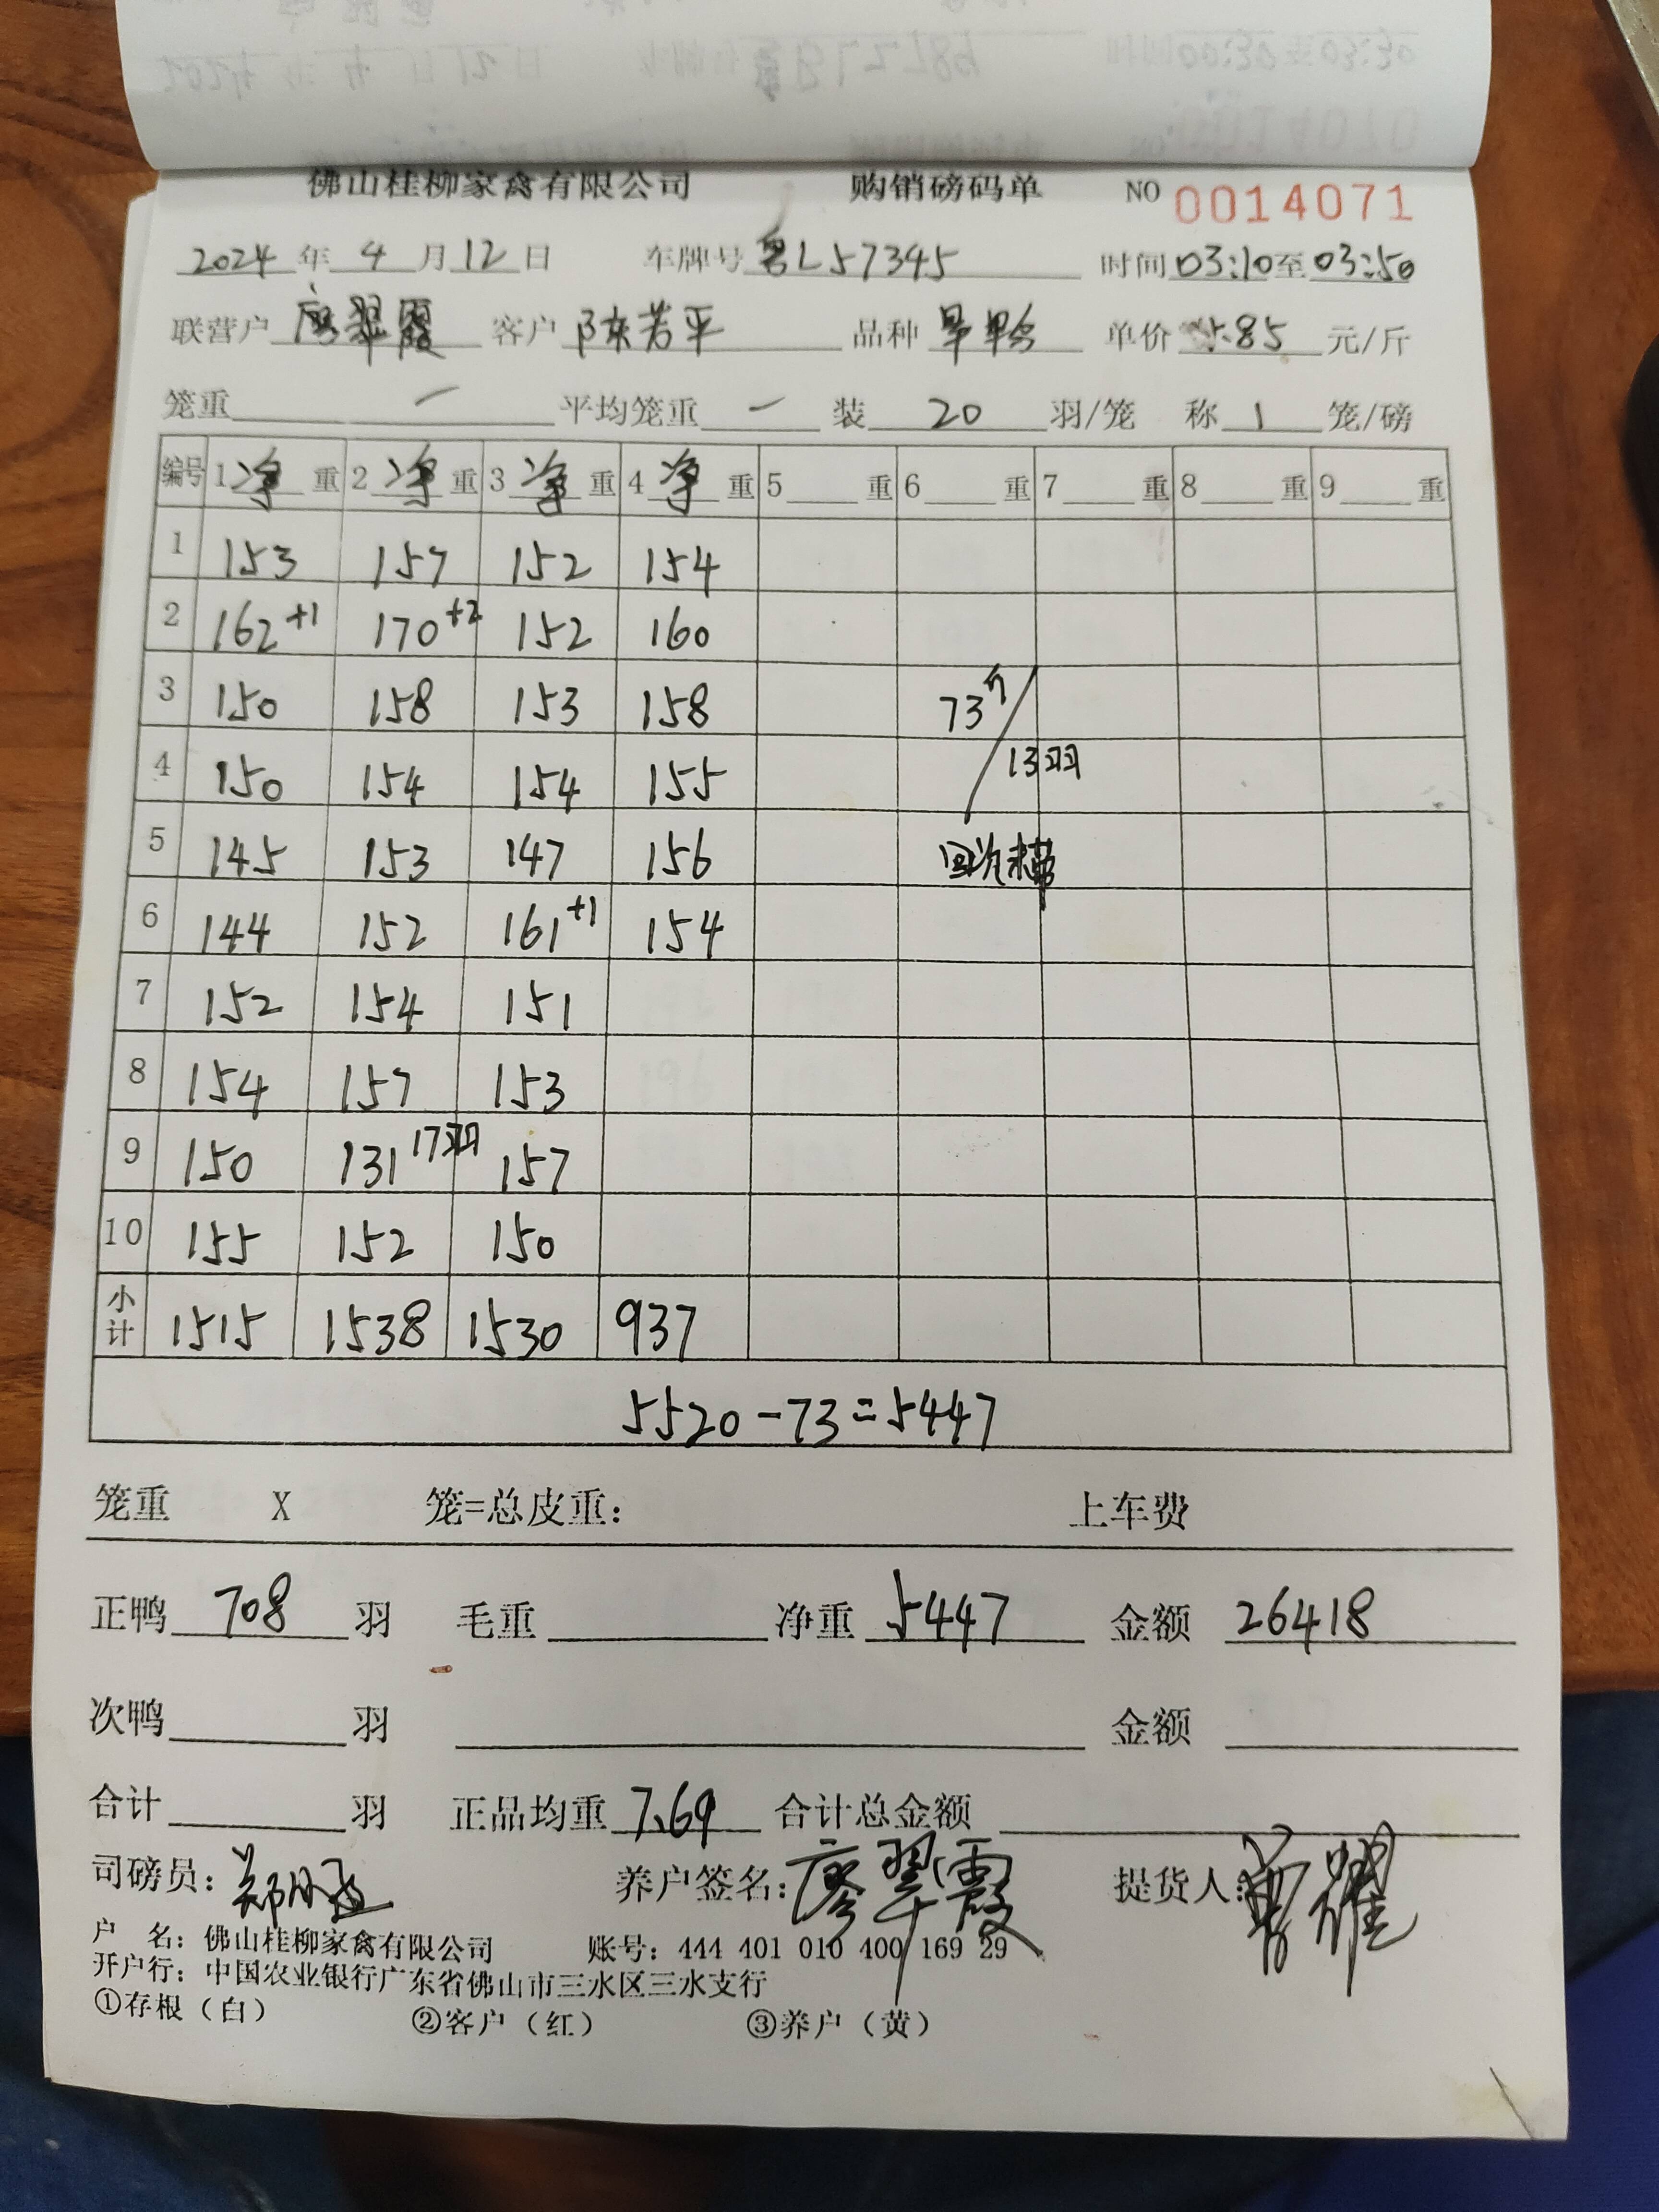 佛山桂柳家禽有限公司 购销磅码单 NO 0014071
2024 年 4 月 12 日 车牌号 粤L57345 时间 03:10 至 03:50
联营户 廖翠霞 客户 陈芳平 品种 旱鸭 单价 4.85 元/斤
笼重 一 平均笼重 一 装 20 羽/笼 称 1 笼/磅
编号 1 净 重 2 净 重 3 净 重 4 净 重 5 重 6 重 7 重 8 重 9 重
1 153 157 152 154
2 162+1 170+2 152 160
3 150 158 153 158 73斤
4 150 154 154 155 13羽
5 145 153 147 156
6 144 152 161+1 154
7 152 154 151
8 154 157 153
9 150 131 17羽 157
10 155 152 150
小计 1515 1538 1530 937
5520-73=5447
笼重 X 笼=总皮重: 上车费
正鸭 708 羽 毛重 净重 5447 金额 26418
次鸭 羽 金额
合计 羽 正品均重 7.69 合计总金额
司磅员: 养户签名: 廖翠霞 提货人:
户 名: 佛山桂柳家禽有限公司 账号: 444 401 010 400 169 29
开户行: 中国农业银行广东省佛山市三水区三水支行
①存根(白) ②客户(红) ③养户(黄)